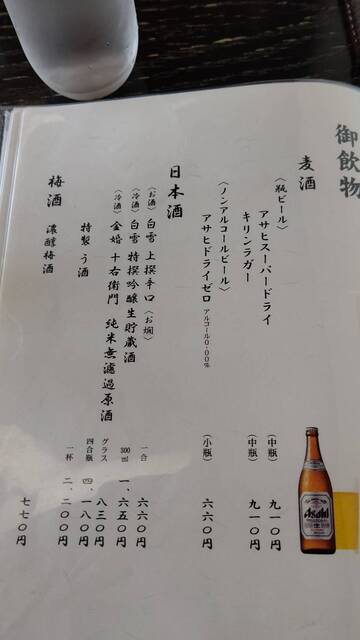 御飲物
麦酒
〈瓶ビール〉
アサヒスーパードライ (中瓶) 九一〇円
キリンラガー (中瓶) 九一〇円
〈ノンアルコールビール〉
アサヒドライゼロ アルコール0.00% (小瓶) 六六〇円
日本酒
〈お酒〉 白雪 上撰辛口〈お燗〉 一合 六六〇円
〈冷酒〉 白雪 特撰吟醸生貯蔵酒 300ml 一、六五〇円
〈冷酒〉 金婚 十右衛門 純米無濾過原酒 グラス 八三〇円
四合瓶 四、一八〇円
特製 う酒 一杯 二、二〇〇円
梅酒
濃醇梅酒 七七〇円
Asahi